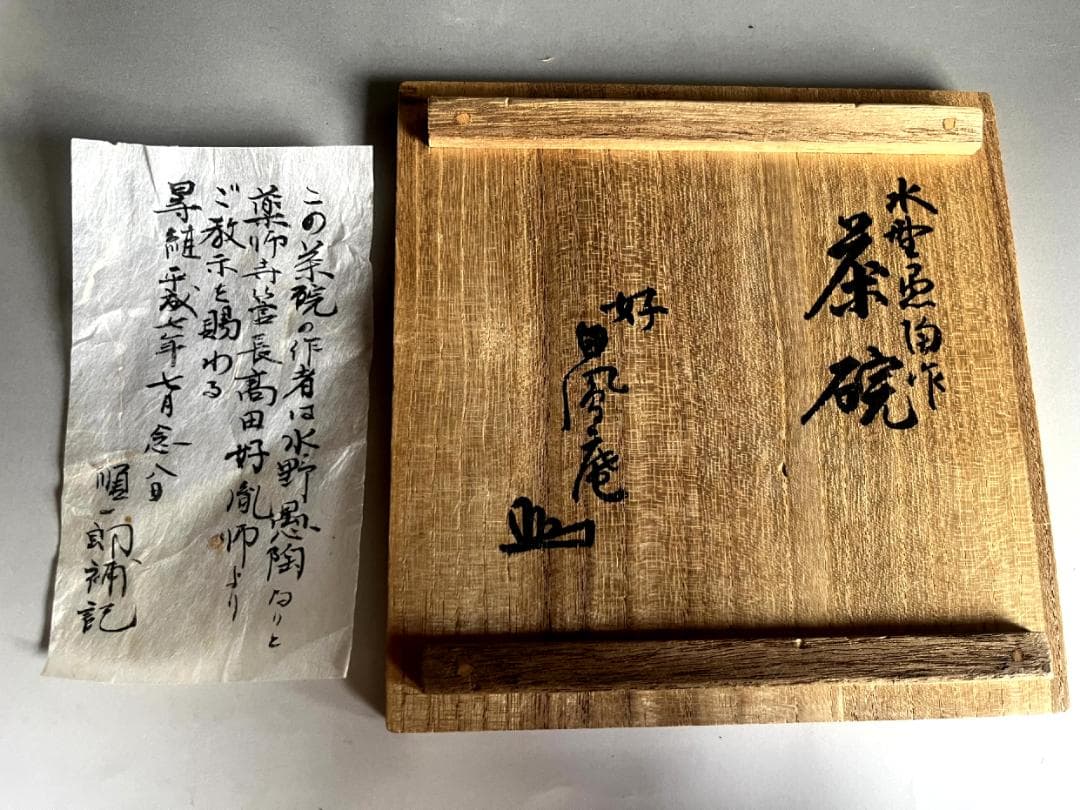 水野愚陶作
茶碗
好
風庵
この茶碗の作者は水野愚陶なりと
薬師寺管長高田好胤師より
ご教示を賜わる
平成七年七月念八日
順一郎補記